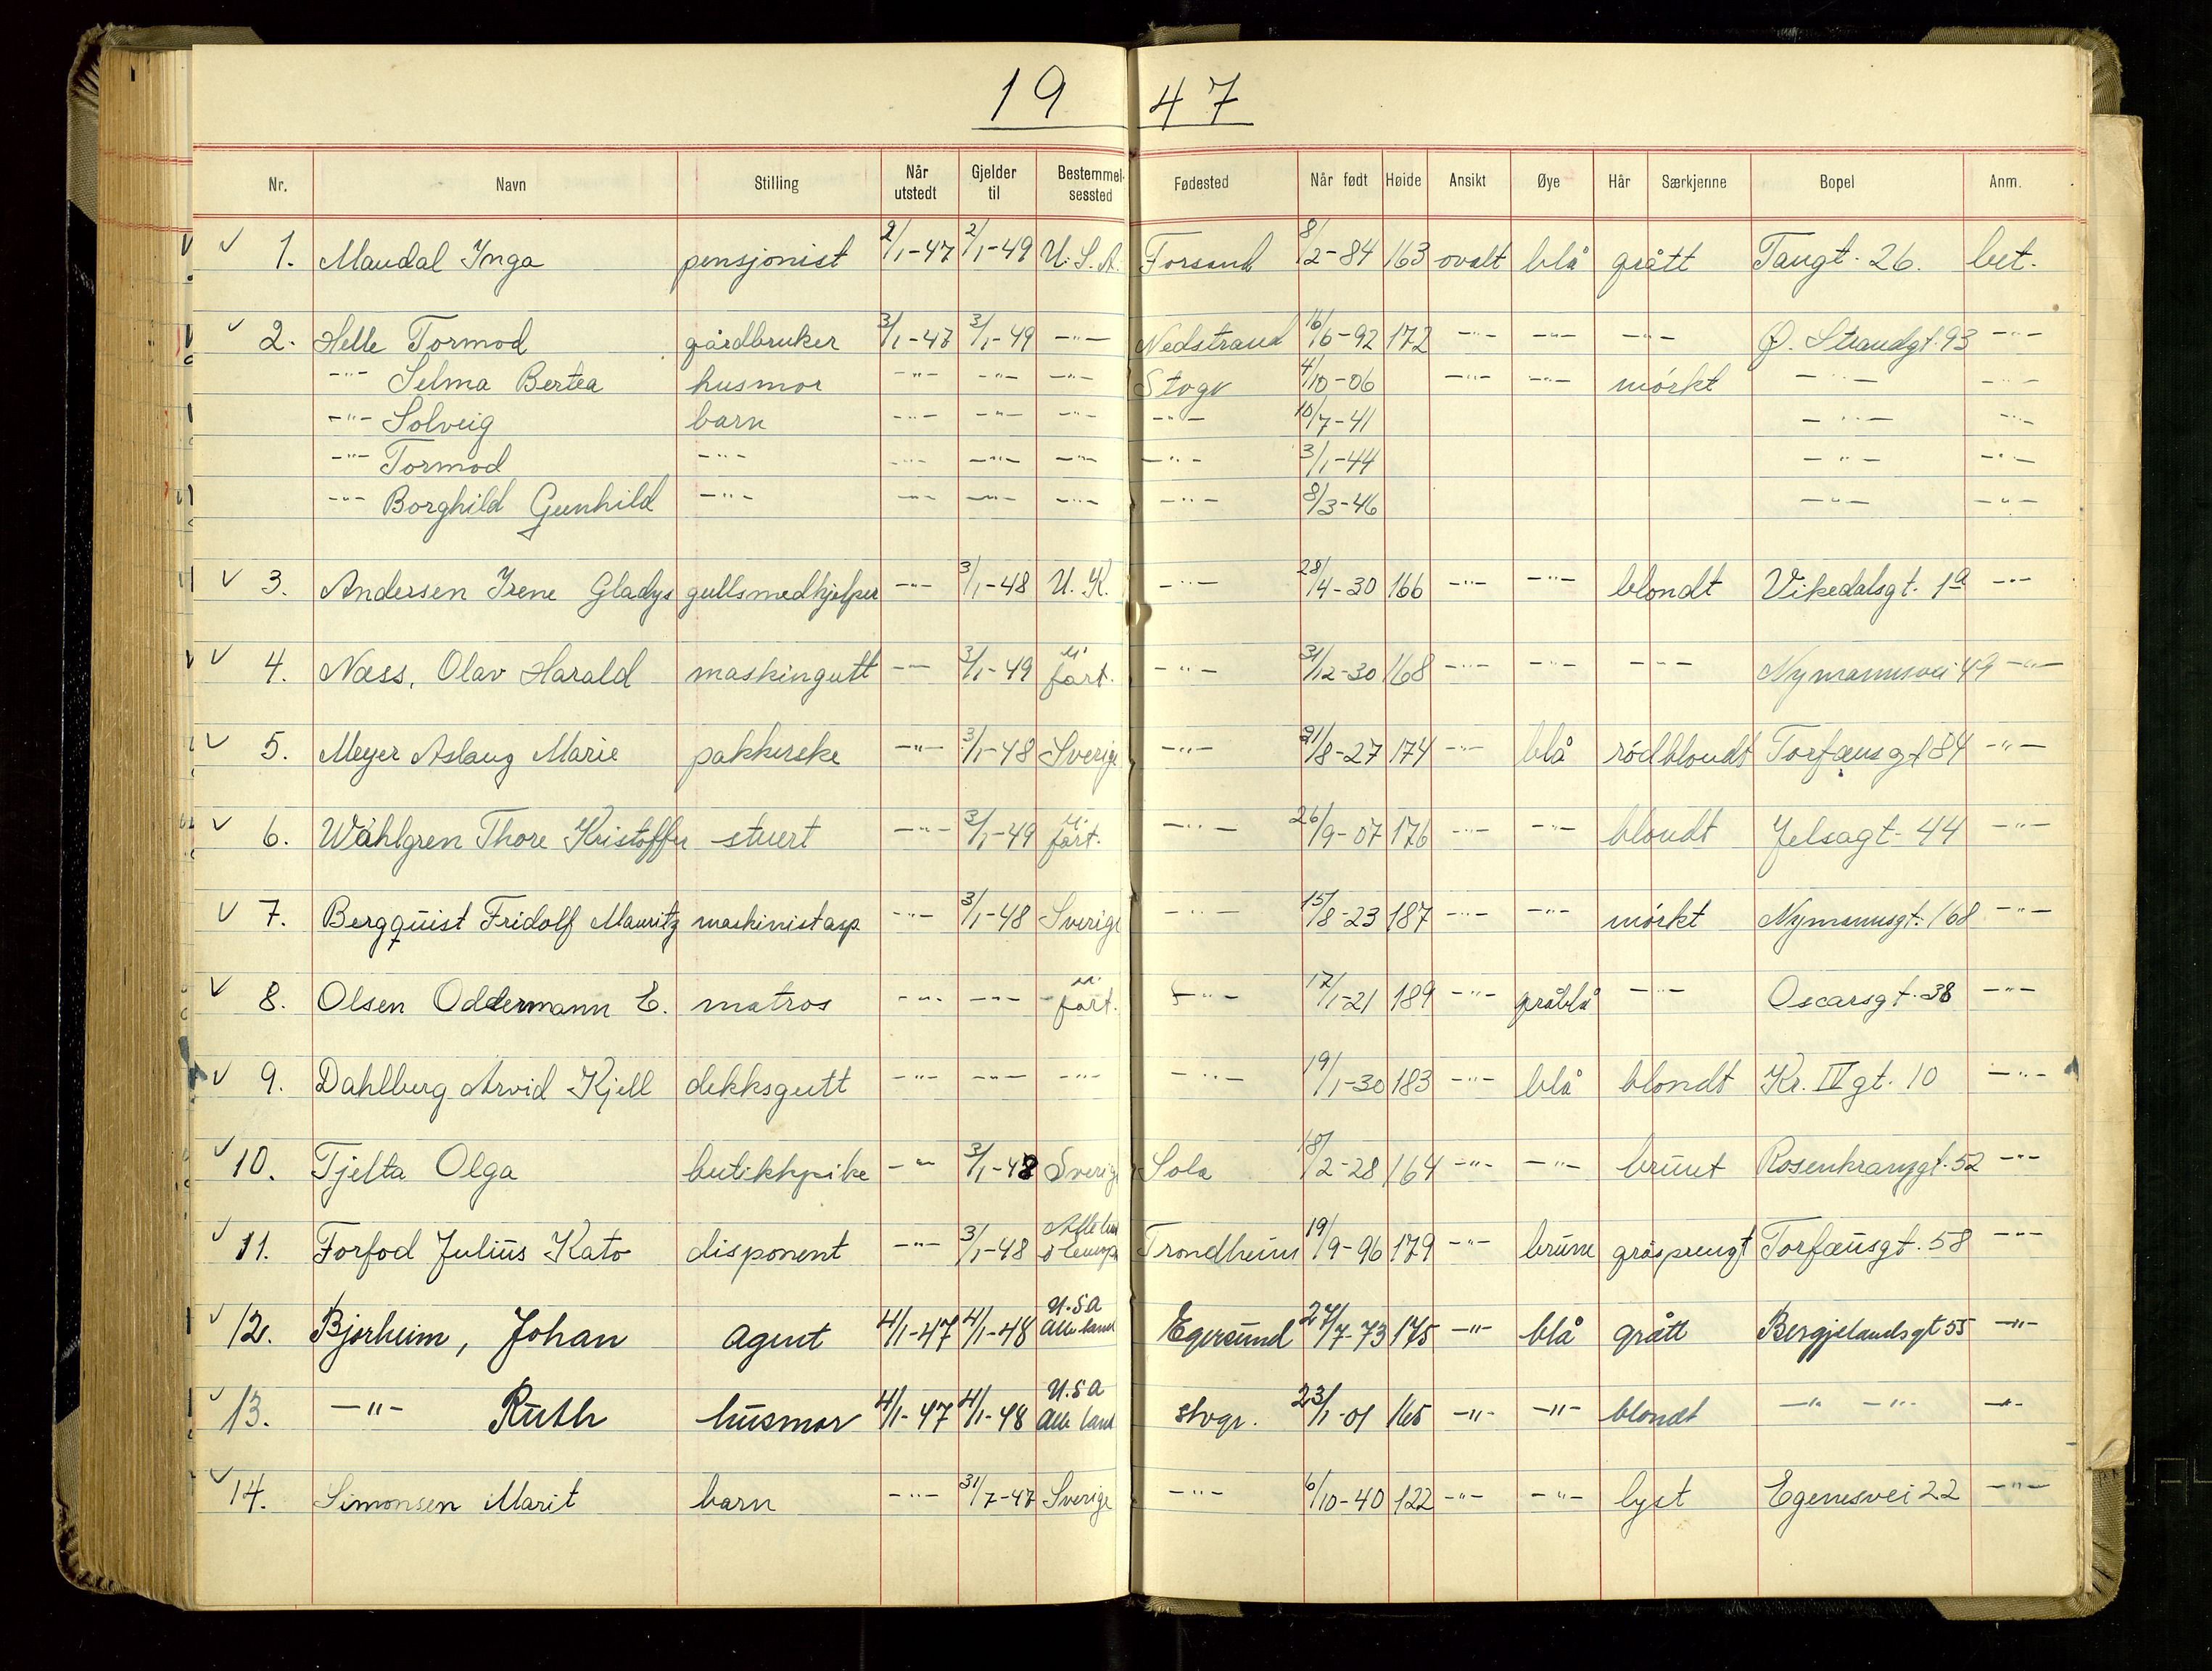 19 47
Nr. Navn Stilling Når utstedt Gjelder til Bestemmelsessted Fødested Når født Høide Ansikt Øye Hår Særkjenne Bopel Anm.
1. Maudal Inga pensjonist 2/1-47 2/1-49 U.S.A. Forsand 8/2-84 163 ovalt blå grått Tangt. 26. bet.
2. Helle Tormod gårdbruker 3/1-47 3/1-49 -"- Nedstrand 16/6-92 172 -"- -"- -"- Ø. Strandgt. 93 -"-
-"- Selma Bertea husmor -"- -"- -"- Stvgr 4/10-06 -"- -"- mörkt -"- -"-
-"- Solveig barn -"- -"- -"- -"- 10/7-41 -"- -"-
-"- Tormod -"- -"- -"- -"- -"- 3/1-44 -"- -"-
-"- Borghild Gunhild -"- -"- -"- -"- -"- 8/3-46 -"- -"-
3. Andersen Irene Gladys gullsmedhjelper -"- 3/1-48 U.K. -"- 28/4-30 166 -"- -"- blondt Vikedalsgt. 1a -"-
4. Næss, Olav Harald maskingutt -"- 3/1-49 u. fart. -"- 31/12-30 168 -"- -"- -"- Nymannsvei 49 -"-
5. Meyer Aslaug Marie pakkerske -"- 3/1-48 Sverige -"- 21/8-27 174 -"- blå rödblondt Torfæusgt 84 -"-
6. Wåhlgren Thore Kristoffer stuert -"- 3/1-49 u. fart. -"- 26/9-07 176 -"- -"- blondt Jelsagt. 44 -"-
7. Bergquist Fridolf Mauritz maskinistasp. -"- 3/1-48 Sverige -"- 15/8-23 187 -"- -"- mörkt Nymannsgt. 168 -"-
8. Olsen Oddermann E. matros -"- -"- u. fart. -"- 17/1-21 189 -"- gråblå -"- Oscarsgt. 38 -"-
9. Dahlberg Arvid Kjell dekksgutt -"- -"- -"- -"- 19/1-30 183 -"- blå blondt Kr. IV gt. 10 -"-
10. Tjelta Olga butikkpike -"- 3/1-48 Sverige Sola 18/2-28 164 -"- -"- brunt Rosenkranzgt. 52 -"-
11. Forfod Julius Kato disponent -"- 3/1-48 Alle Trondheim 19/9-96 179 -"- brune gråsprengt Torfæusgt. 58 -"-
12. Bjørheim, Johan agent 4/1-47 4/1-48 U.S.A Alle land Egersund 27/7-73 175 -"- blå grått Bergjelandsgt 55 -"-
13. -"- Ruth husmor 4/1-47 4/1-48 U.S.A Alle land stvgr. 23/1-01 165 -"- -"- blondt -"- -"- -"-
14. Simonsen Marit barn -"- 31/7-47 Sverige -"- 6/10-40 122 -"- -"- lyst Egenesvei 22 -"-